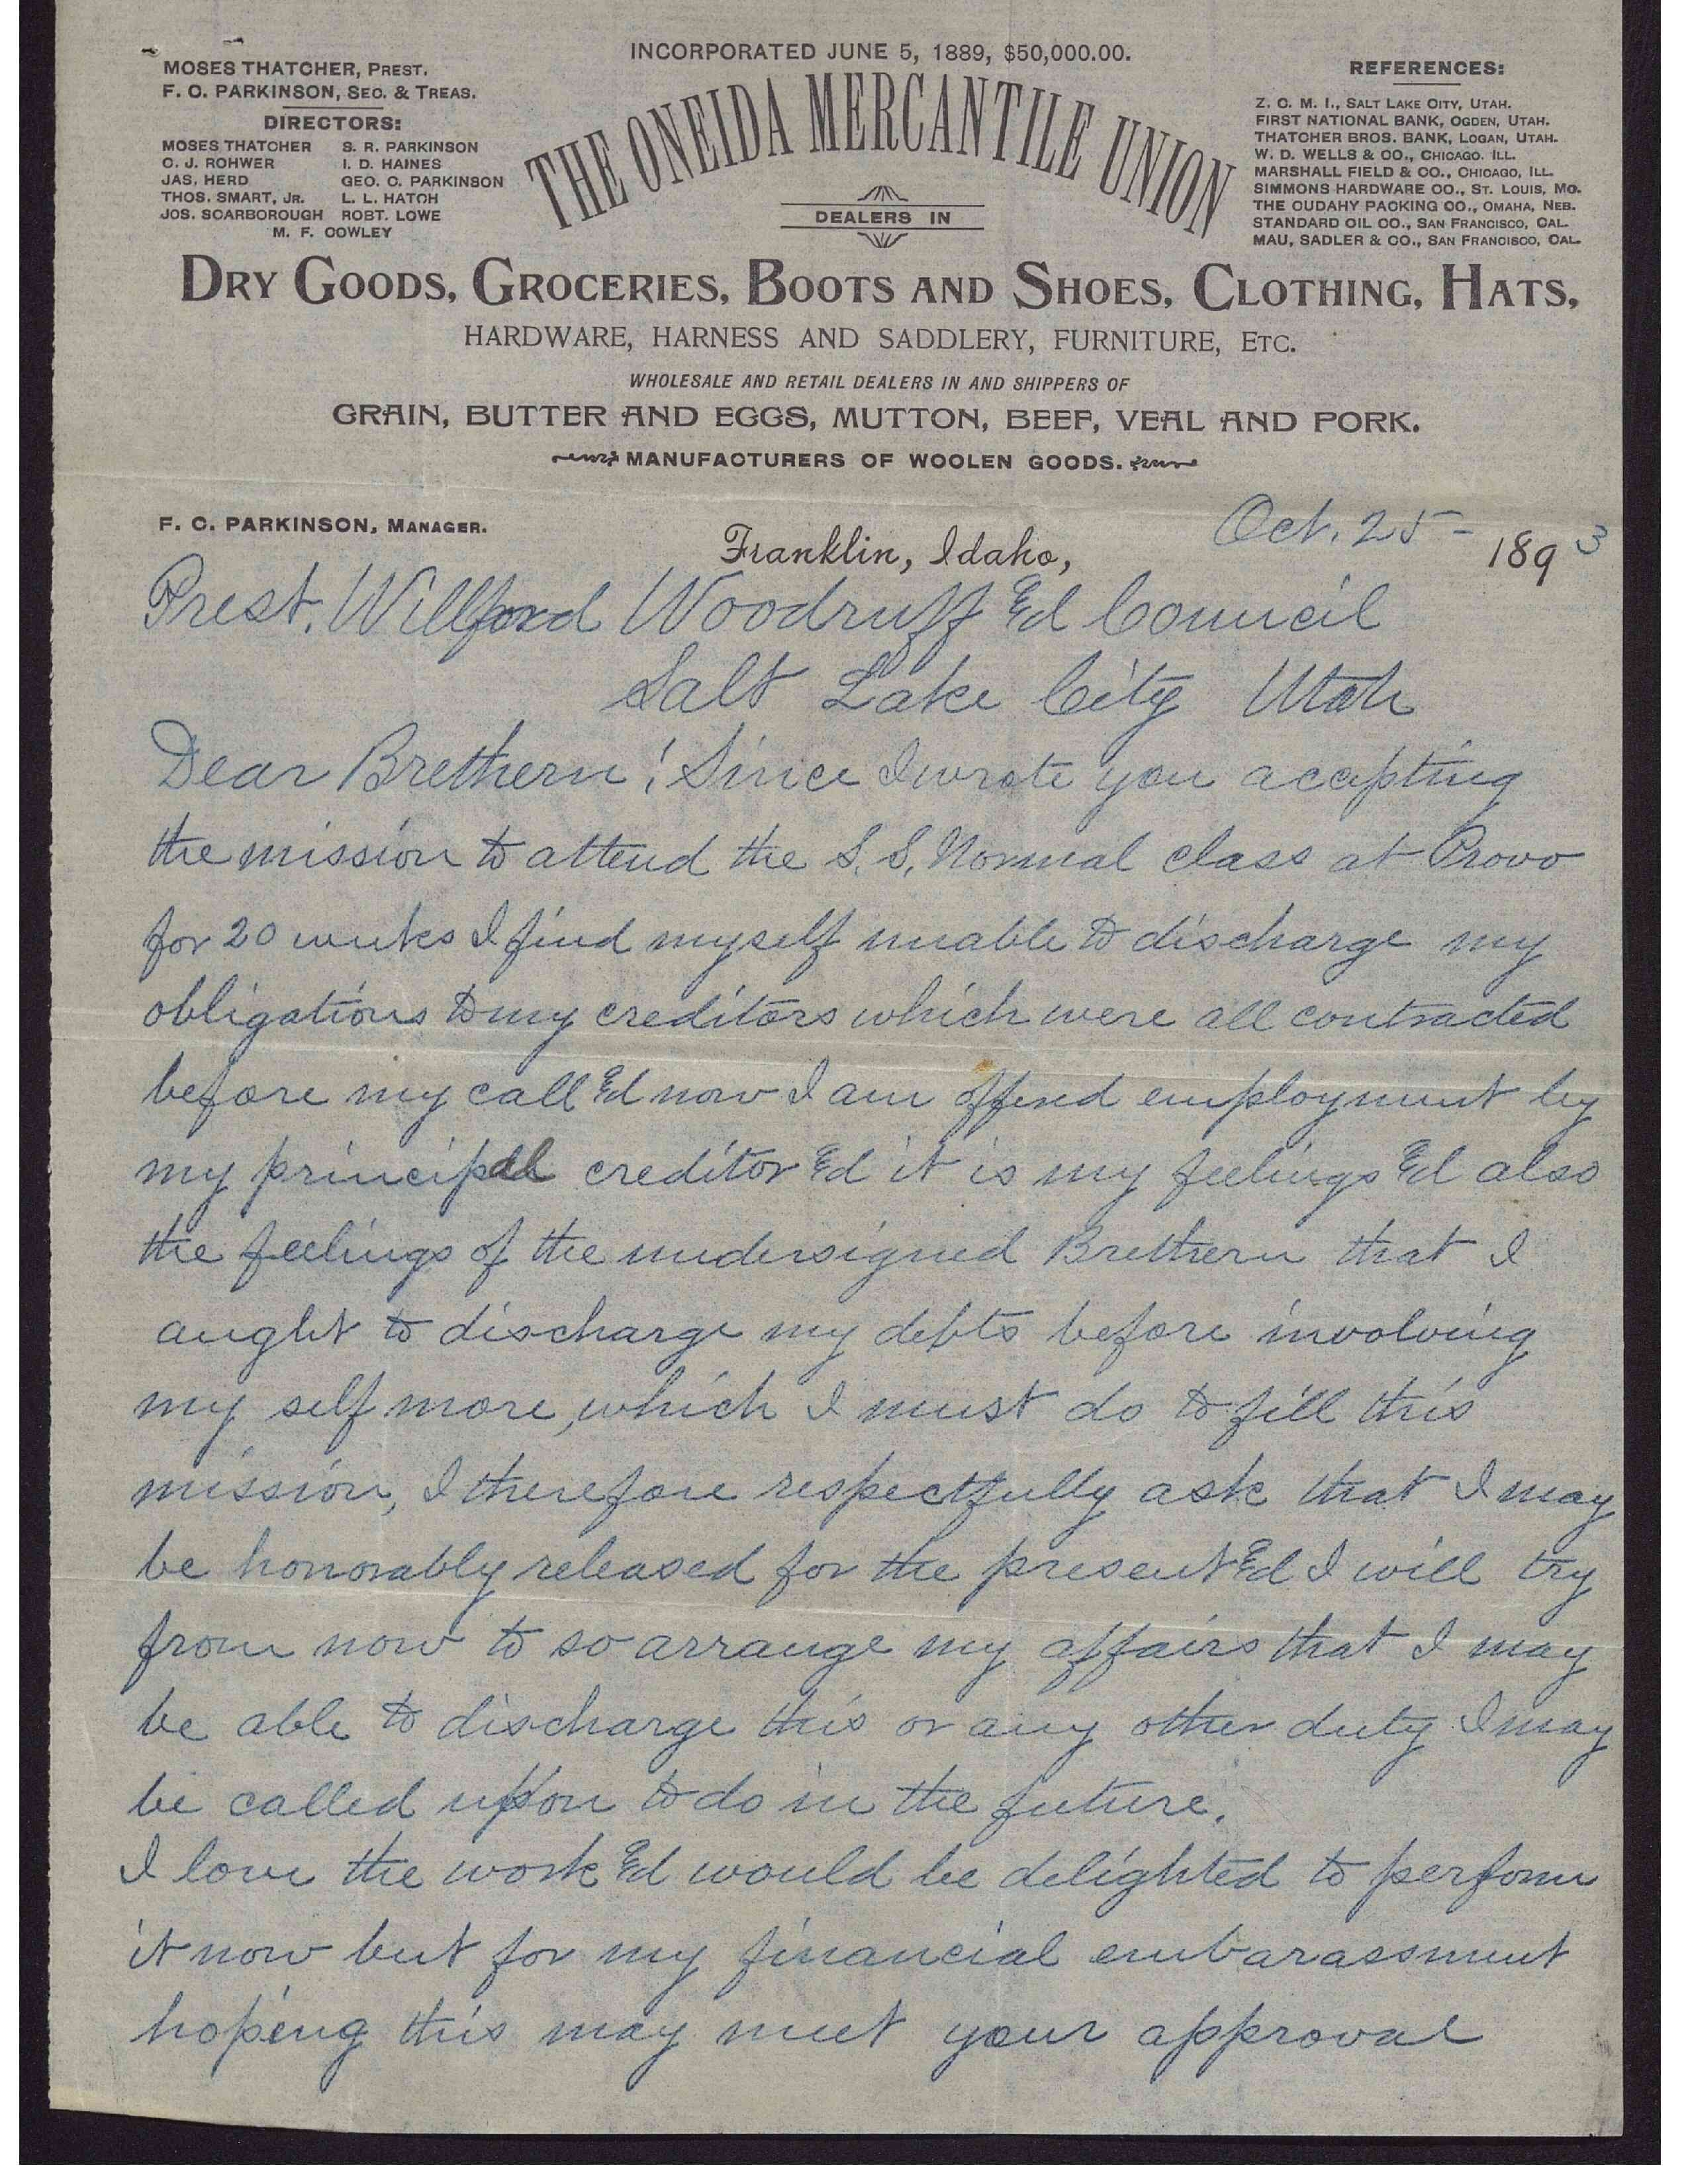 INCORPORATED JUNE 5, 1889, $50,000.00.
MOSES THATCHER, PREST.
F. C. PARKINSON, SEC. & TREAS.
DIRECTORS:
MOSES THATCHER S. R. PARKINSON
C. J. ROHWER I. D. HAINES
JAS, HERD GEO. C. PARKINSON
THOS. SMART, JR. L. L. HATCH
JOS. SCARBOROUGH ROBT. LOWE
M. F. COWLEY
THE ONEIDA MERCANTILE UNION
DEALERS IN
REFERENCES:
Z. C. M. I., SALT LAKE CITY, UTAH.
FIRST NATIONAL BANK, OGDEN, UTAH.
THATCHER BROS. BANK, LOGAN, UTAH.
W. D. WELLS & CO., CHICAGO. ILL.
MARSHALL FIELD & CO., CHICAGO, ILL.
SIMMONS HARDWARE CO., ST. LOUIS, MO.
THE CUDAHY PACKING CO., OMAHA, NEB.
STANDARD OIL CO., SAN FRANCISCO, CAL.
MAU, SADLER & CO., SAN FRANCISCO, CAL.
DRY GOODS, GROCERIES, BOOTS AND SHOES, CLOTHING, HATS,
HARDWARE, HARNESS AND SADDLERY, FURNITURE, ETC.
WHOLESALE AND RETAIL DEALERS IN AND SHIPPERS OF
GRAIN, BUTTER AND EGGS, MUTTON, BEEF, VEAL AND PORK.
MANUFACTURERS OF WOOLEN GOODS.
F. C. PARKINSON, MANAGER.
Franklin, Idaho, Oct. 25 - 1893
Prest. Willford Woodruff &d Council
Salt Lake City Utah
Dear Brethern! Since I wrote you accepting
the mission to attend the S. S. Normal class at Provo
for 20 weeks I find myself unable to discharge my
obligations to my creditors which were all contracted
before my call &d now I am offered employment by
my principal creditor &d it is my feelings &d also
the feelings of the undersigned Brethern that I
aught to discharge my debts before involving
my self more, which I must do to fill this
mission, I therefore respectfully ask that I may
be honorably released for the present &d I will try
from now to so arrange my affairs that I may
be able to discharge this or any other duty I may
be called upon to do in the future.
I love the work &d would be delighted to perform
it now but for my financial embarassment
hopeing this may meet your approval